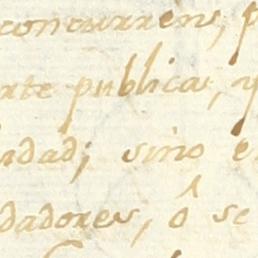 concurren, p
rte publica, y
ndad; sino e
dadores, ô se